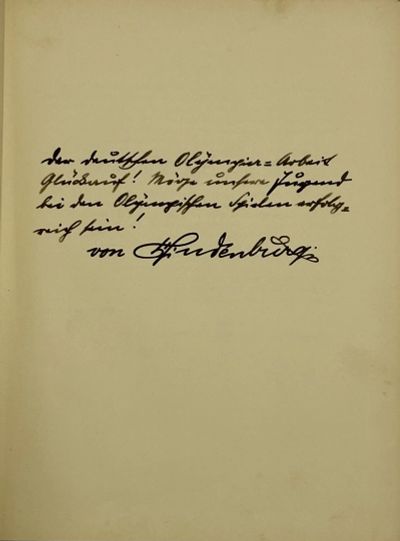 Der deutschen Olympia=Arbeit
Glückauf! Möge unsere Jugend
bei den Olympischen Spielen erfolg=
reich sein!
von Hindenburg